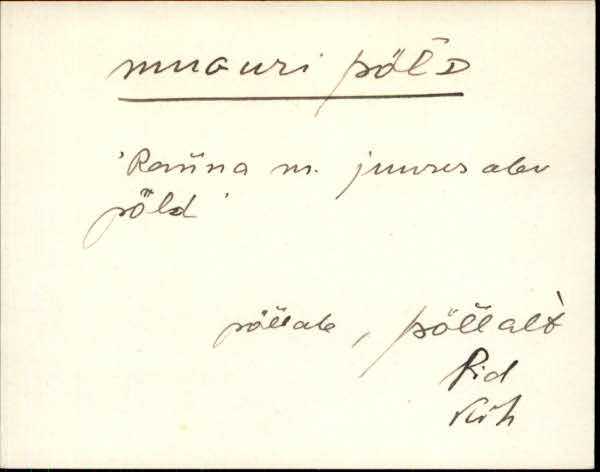 muauri põlD
'Ranna m. juures olev
põld'
põllale, põllalt
Rid